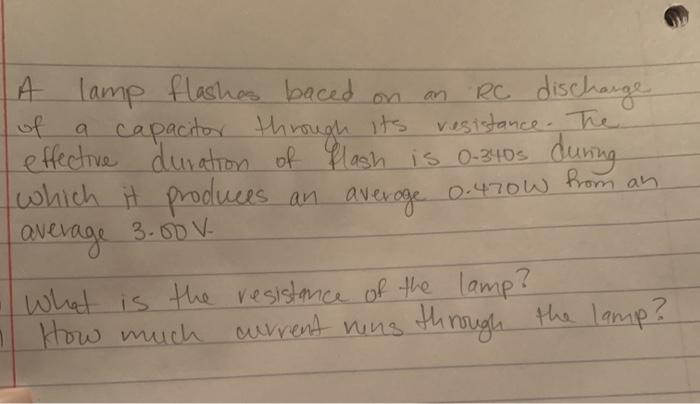 A lamp flashes baced on an RC discharge
of a capacitor through its resistance. The
effective duration of flash is 0.340s during
which it produces an average 0.470W from an
average 3.00V.
What is the resistance of the lamp?
How much current runs through the lamp?